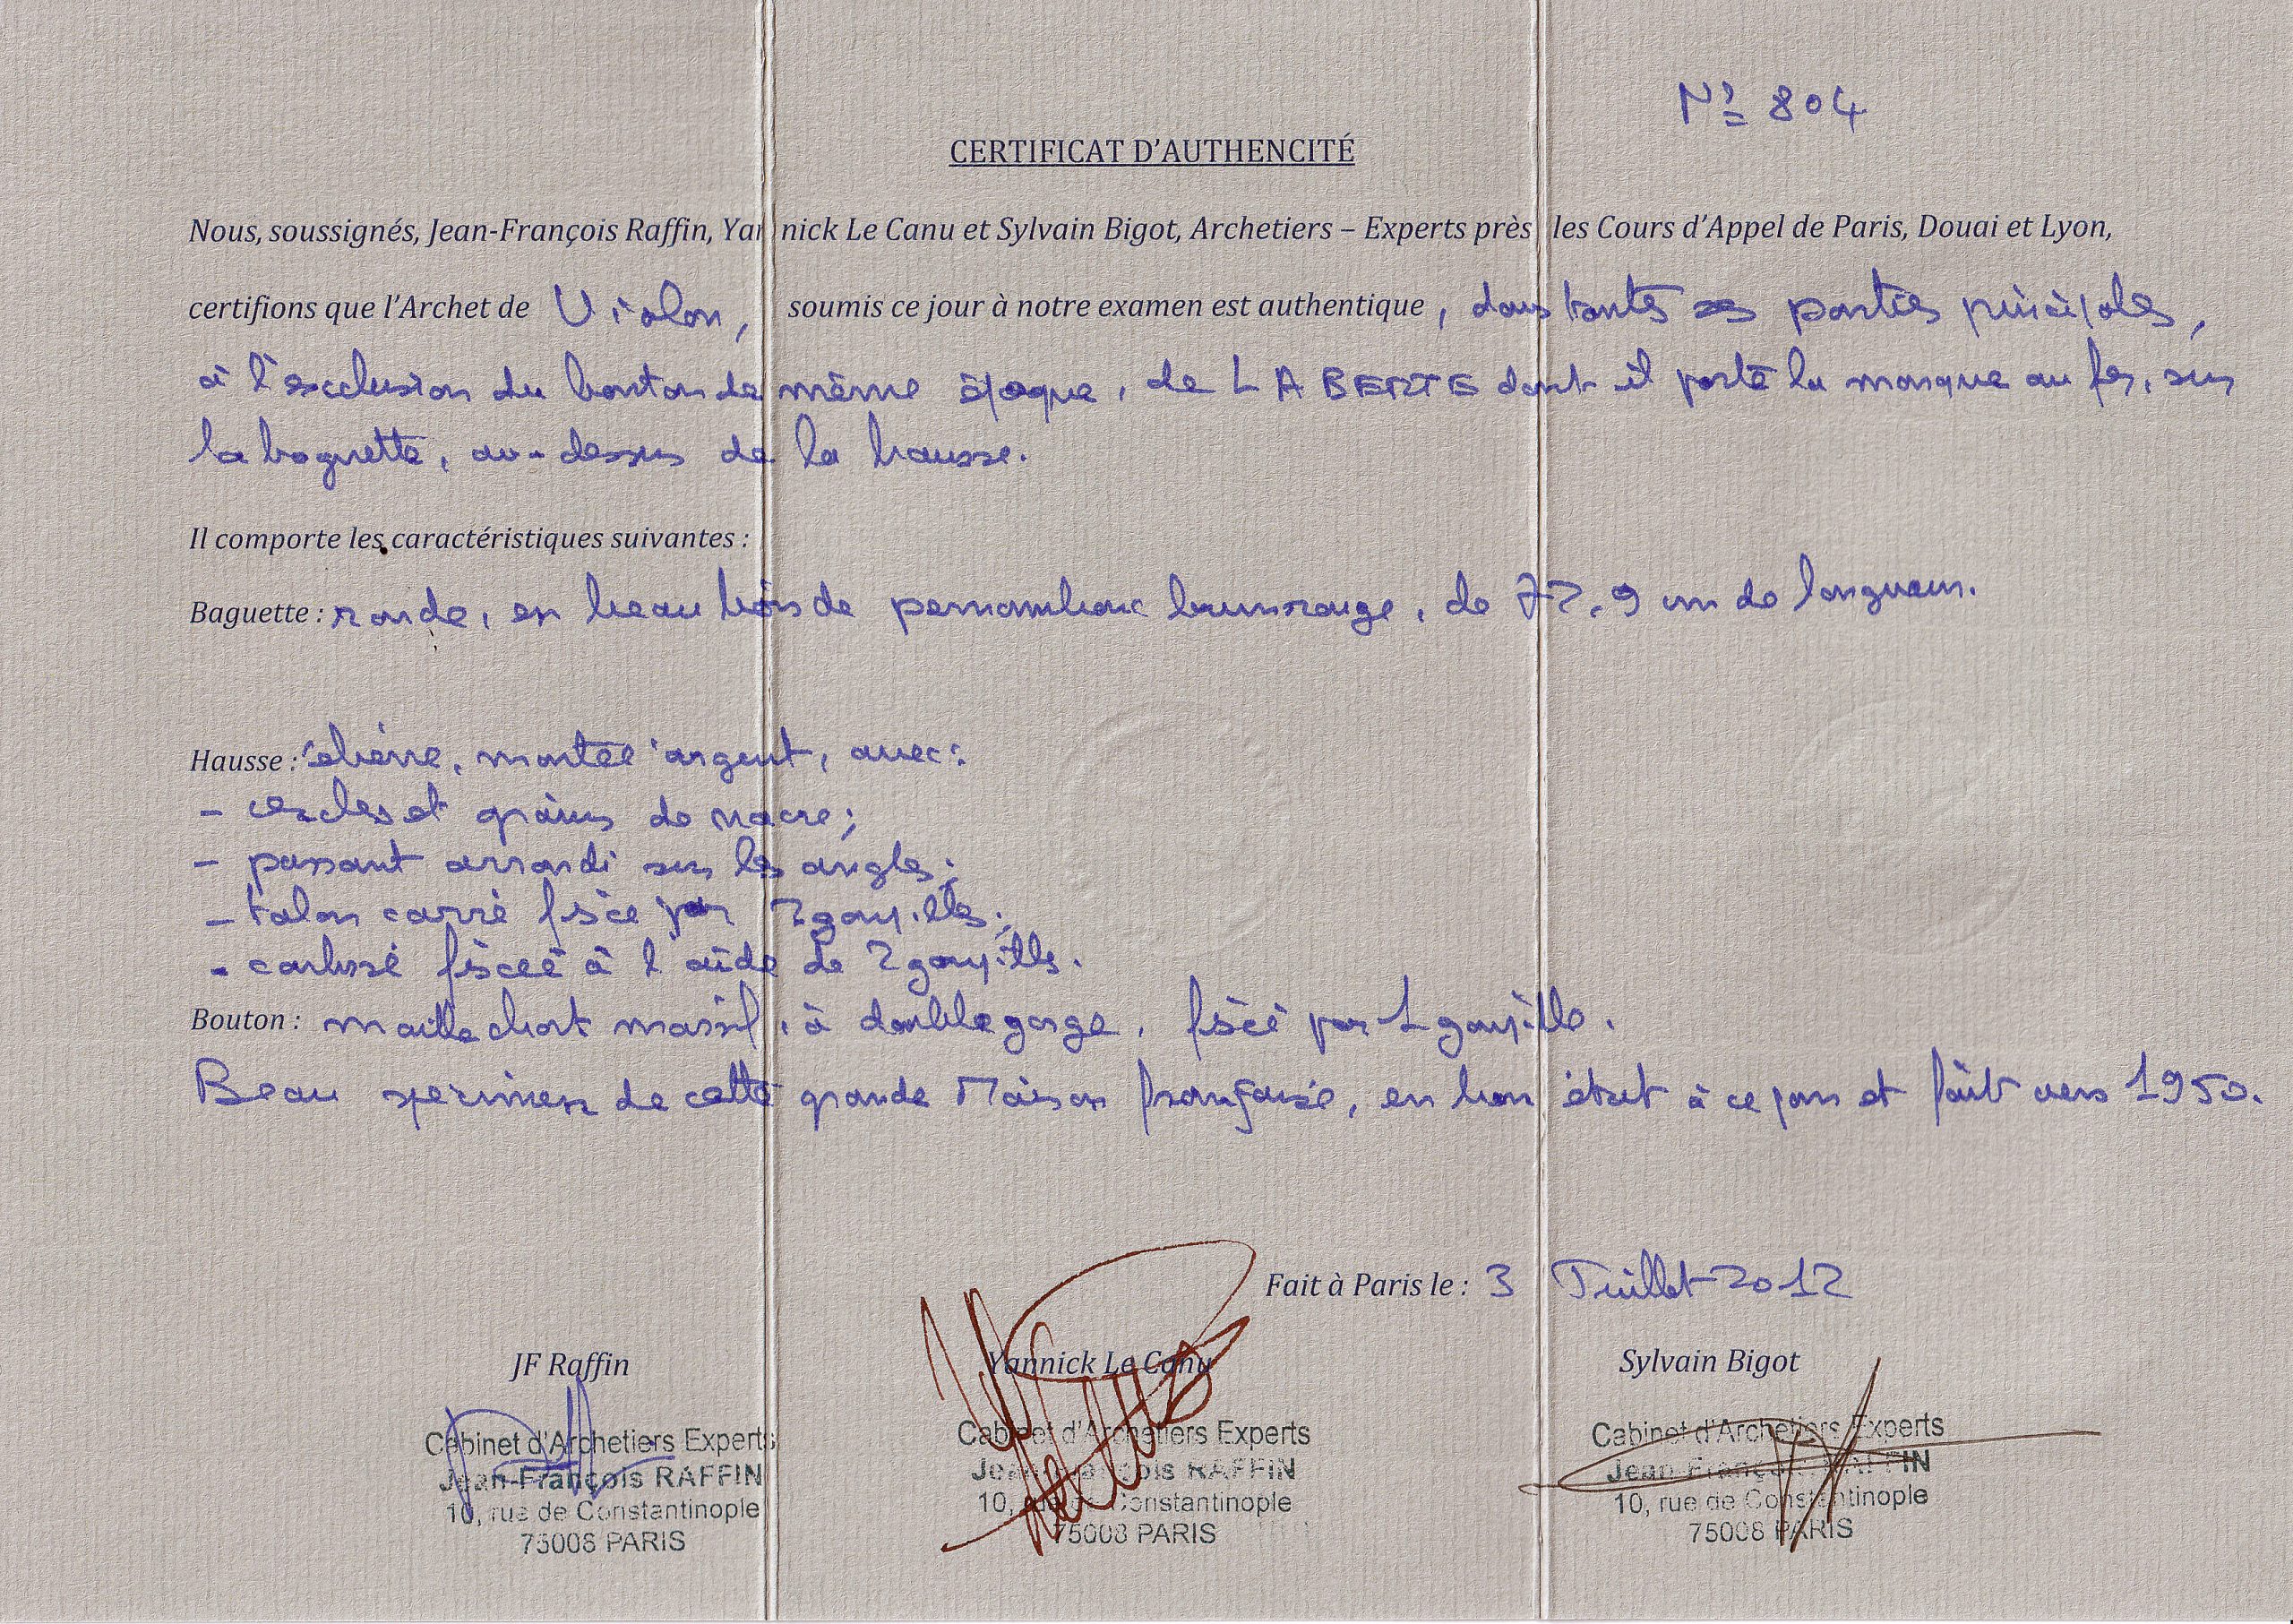 Nº 804
CERTIFICAT D'AUTHENCITÉ
Nous, soussignés, Jean-François Raffin, Yannick Le Canu et Sylvain Bigot, Archetiers – Experts près les Cours d'Appel de Paris, Douai et Lyon,
certifions que l'Archet de Violon, soumis ce jour à notre examen est authentique, dans toutes ses parties principales,
à l'exclusion du bouton de même époque, de LABERTE dont il porte la marque au fer, sur
la baguette, au-dessus de la hausse.
Il comporte les caractéristiques suivantes :
Baguette : ronde, en beau bois de pernambouc brun rouge, de 72,9 cm de longueur.
Hausse : ébène, montée argent, avec :
- cercles et grains de nacre;
- passant arrondi sur les angles;
- talon carré fixé par 2 goupilles;
- coulisse fixée à l'aide de 2 goupilles.
Bouton : maillechort massif, à double gorge, fixé par 1 goupille.
Beau specimen de cette grande Maison française, en bon état à ce jour et fait vers 1950.
Fait à Paris le : 3 Juillet 2012
JF Raffin Yannick Le Canu Sylvain Bigot
Cabinet d'Archetiers Experts Cabinet d'Archetiers Experts Cabinet d'Archetiers Experts
Jean-François RAFFIN Jean-François RAFFIN Jean-François RAFFIN
10, rue de Constantinople 10, rue de Constantinople 10, rue de Constantinople
75008 PARIS 75008 PARIS 75008 PARIS